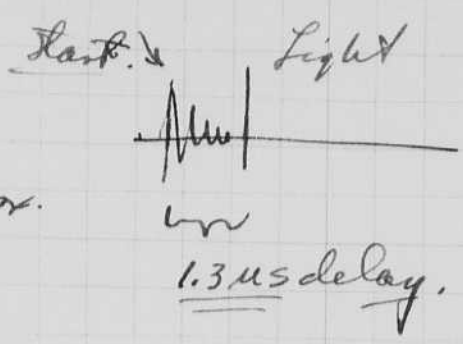 Start. Light
1.3 us delay.